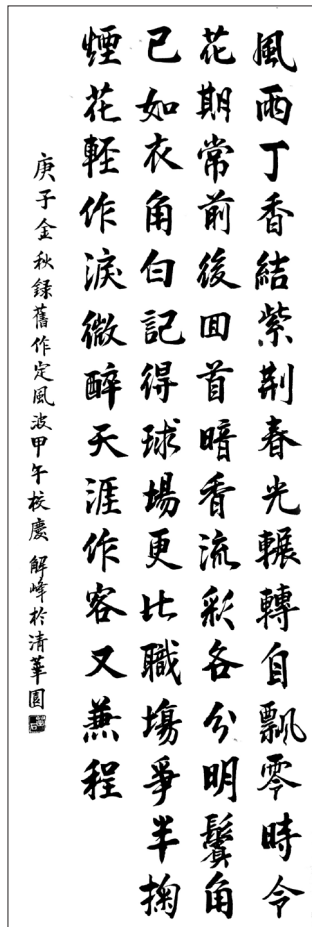 風雨丁香結紫荆春光輾轉自飄零時令
花期常前後回首暗香流彩各分明鬢角
已如衣角白記得球場更比職場爭半掬
煙花輕作淚微醉天涯作客又兼程
庚子金秋録舊作定風波甲午校慶 解峰於清華園